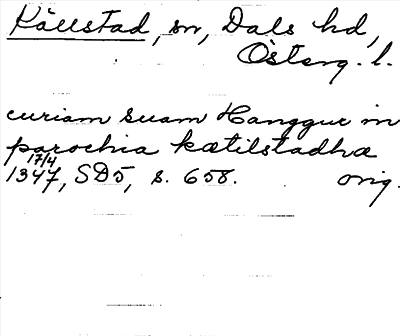 Källstad, sn, Dals hd,
Österg. l.
curiam suam Hanggur in
parochia kætilstadha
17/4
1347, SD5, s. 658. orig.